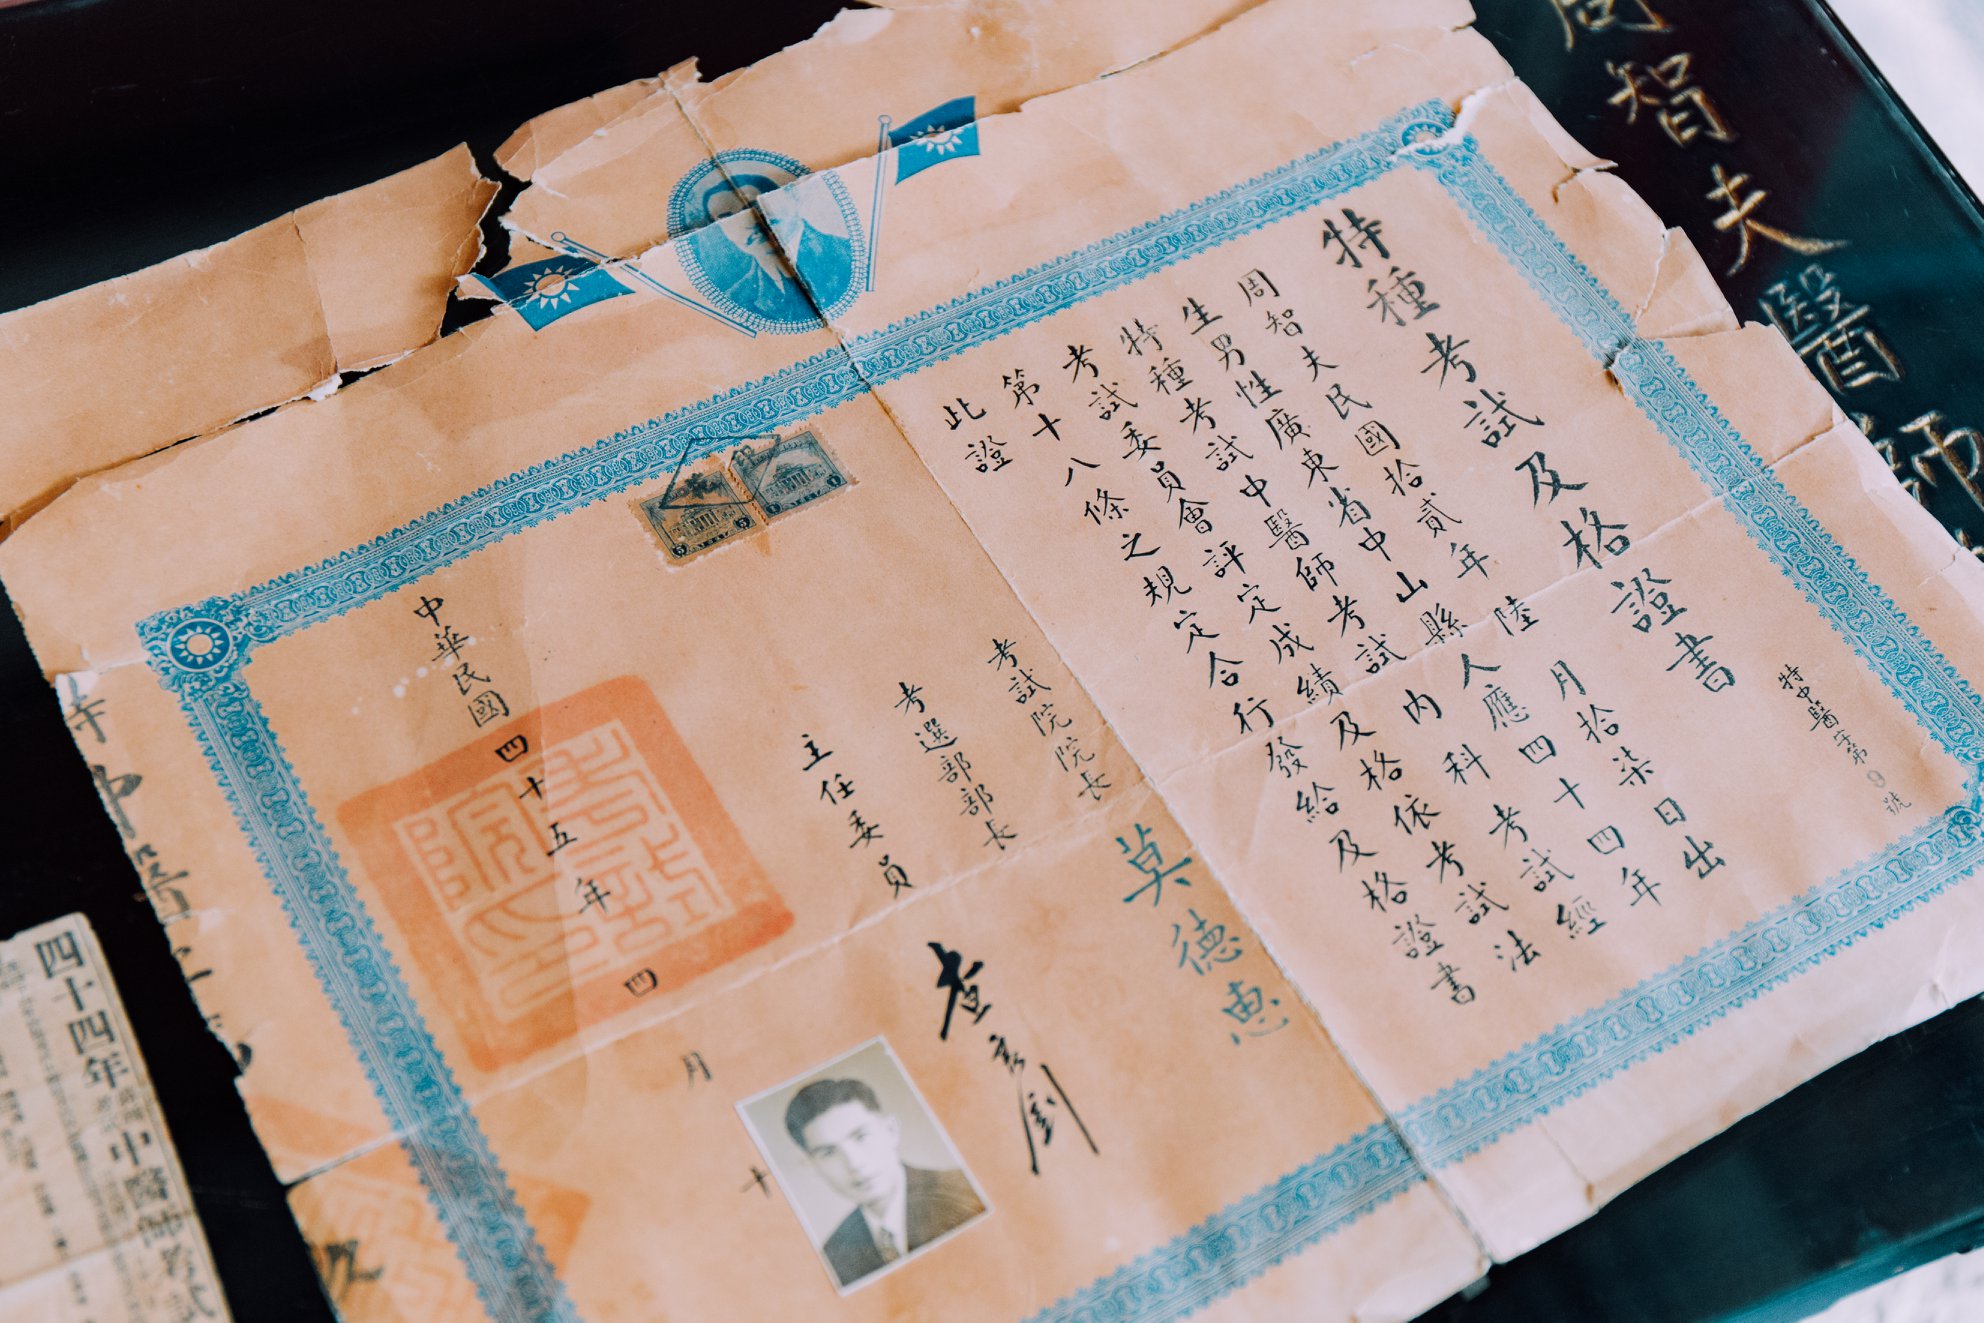 周智夫醫師
特中醫字第9號
特種考試及格證書
周智夫民國拾貳年陸月拾柒日出
生男性廣東省中山縣人應四十四年
特種考試中醫師考試內科考試經
考試委員會評定成績及格依考試法
第十八條之規定合行發給及格證書
此證
考試院院長 莫德惠
考選部部長
主任委員 查良釗
中華民國四十五年四月十
四十四年
中醫師